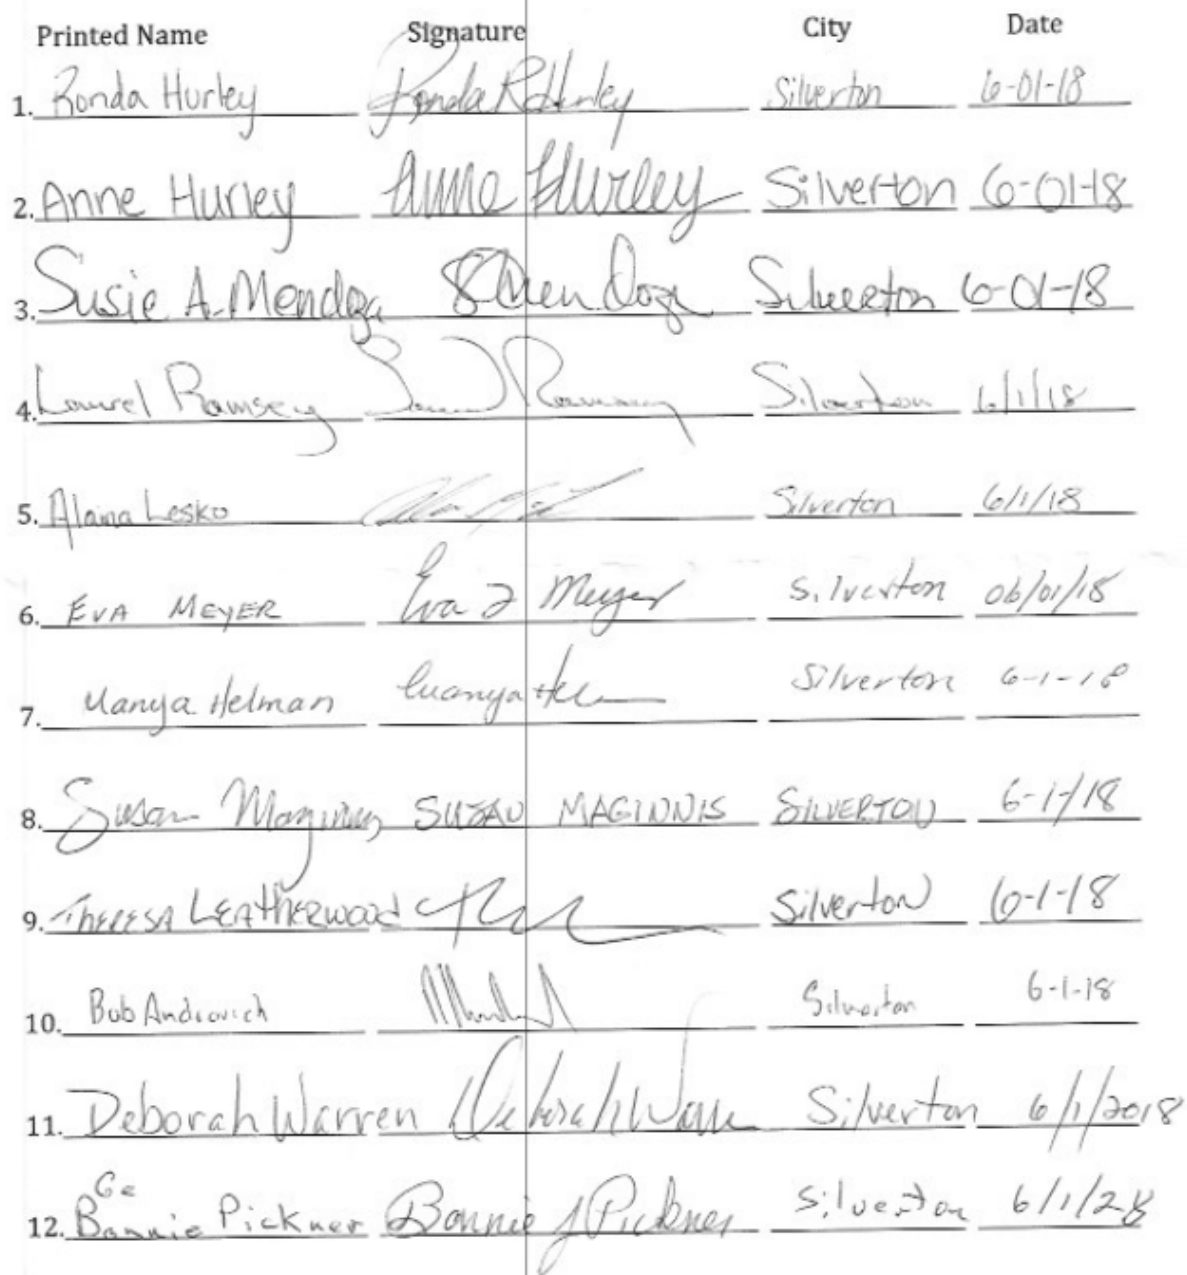 Printed Name Signature City Date
1. Ronda Hurley Ronda R Hurley Silverton 6-01-18
2. Anne Hurley Anne Hurley Silverton 6-01-18
3. Susie A. Mendoza S Mendoza Silverton 6-01-18
4. Laurel Ramsey Laurel Ramsey Silverton 6/1/18
5. Alaina Lesko Silverton 6/1/18
6. EVA MEYER Eva J Meyer Silverton 06/01/18
7. Helman Silverton 6-1-18
8. Susan Maginnis SUSAN MAGINNIS SILVERTON 6-1-/18
9. THERESA LEATHERWOOD Silverton 6-1-18
10. Bob Androvich Silverton 6-1-18
11. Deborah Warren Deborah Warren Silverton 6/1/2018
12. Bonnie Pickner Bonnie J Pickner Silverton 6/1/28